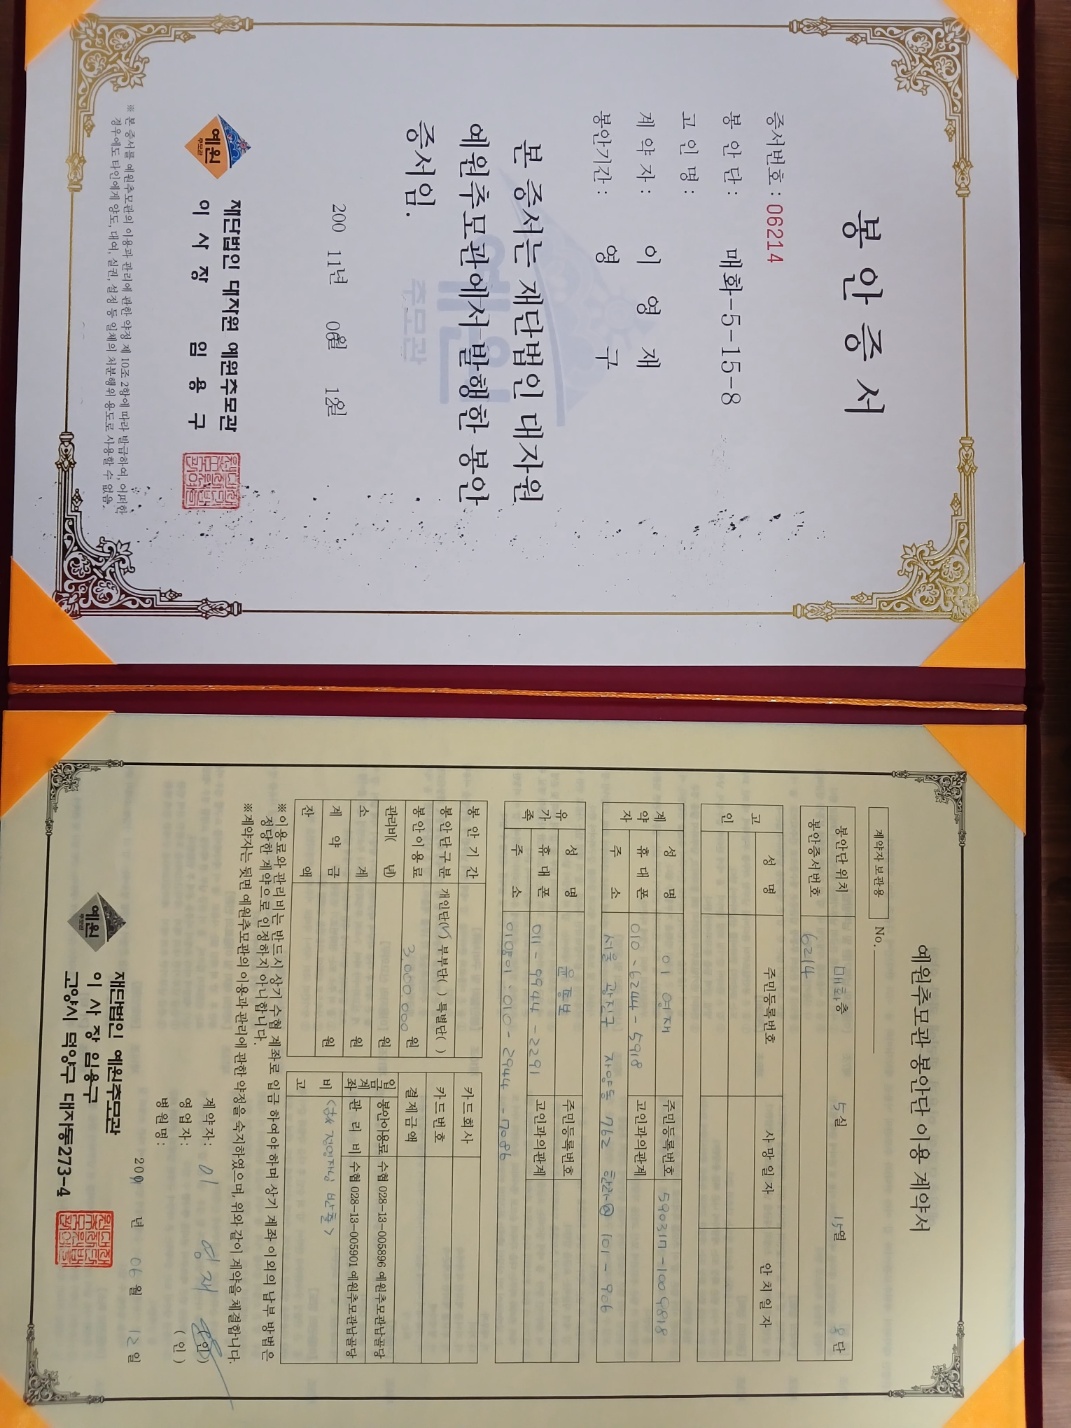 봉안증서
증서번호 : 06214
봉 안 단 : 매화-5-15-8
고 인 명 :
계 약 자 : 이 영 재
봉안기간 : 영 구
본 증서는 재단법인 대자원
예원추모관에서 발행한 봉안
증서임.
200 11년 06월 12일
재단법인 대자원 예원추모관
이 사 장 임 용 구
예원
추모관
※ 본 증서를 예원추모관의 이용과 관리에 관한 약정 제 10조 2항에 따라 발급하여, 어떠한
경우에도 타인에게 양도, 대여, 질권, 설정 등 일체의 처분행위 용도로 사용할 수 없음.
예원추모관 봉안단 이용 계약서
계약자보관용 No.
봉안단 위치 매화층 5실 15열 8단
봉안증서번호 6214
고인
성 명 주민등록번호 사 망 일 자 안 치 일 자
계약자
성 명 이영재 주민등록번호 590317-1009818
휴 대 폰 010-6244-5918 고인과의관계
주 소 서울 광진구 자양동 762 한라@ 101-906
유가족
성 명 주민등록번호
휴 대 폰 011-9944-2291 고인과의관계
주 소 010-2944-7086
봉 안 기 간
봉안단구분 개인단(✓) 부부단( ) 특별단( )
봉안이용료 3,000,000 원
관리비( 년) 원
소 계 원
계 약 금 원
잔 액
카드회사
카드번호
결제금액
입금계좌
봉안이용료 수협 028-13-005896 예원추모관납골당
관 리 비 수협 028-13-005901 예원추모관납골당
비 고
※이용료와 관리비는 반드시 상기 수협 계좌로 입금 하여야 하며 상기 계좌 이외의 납부 방법은
정당한 계약으로 인정하지 아니합니다.
※계약자는 뒷면 예원추모관의 이용과 관리에 관한 약정을 숙지하였으며, 위와 같이 계약을 체결합니다.
계약자: 이 영재 (인)
영업자: (인)
병원명:
년 06월 12일
재단법인 예원추모관
이 사 장 임용구
고양시 덕양구 대자동273-4
예원
추모관